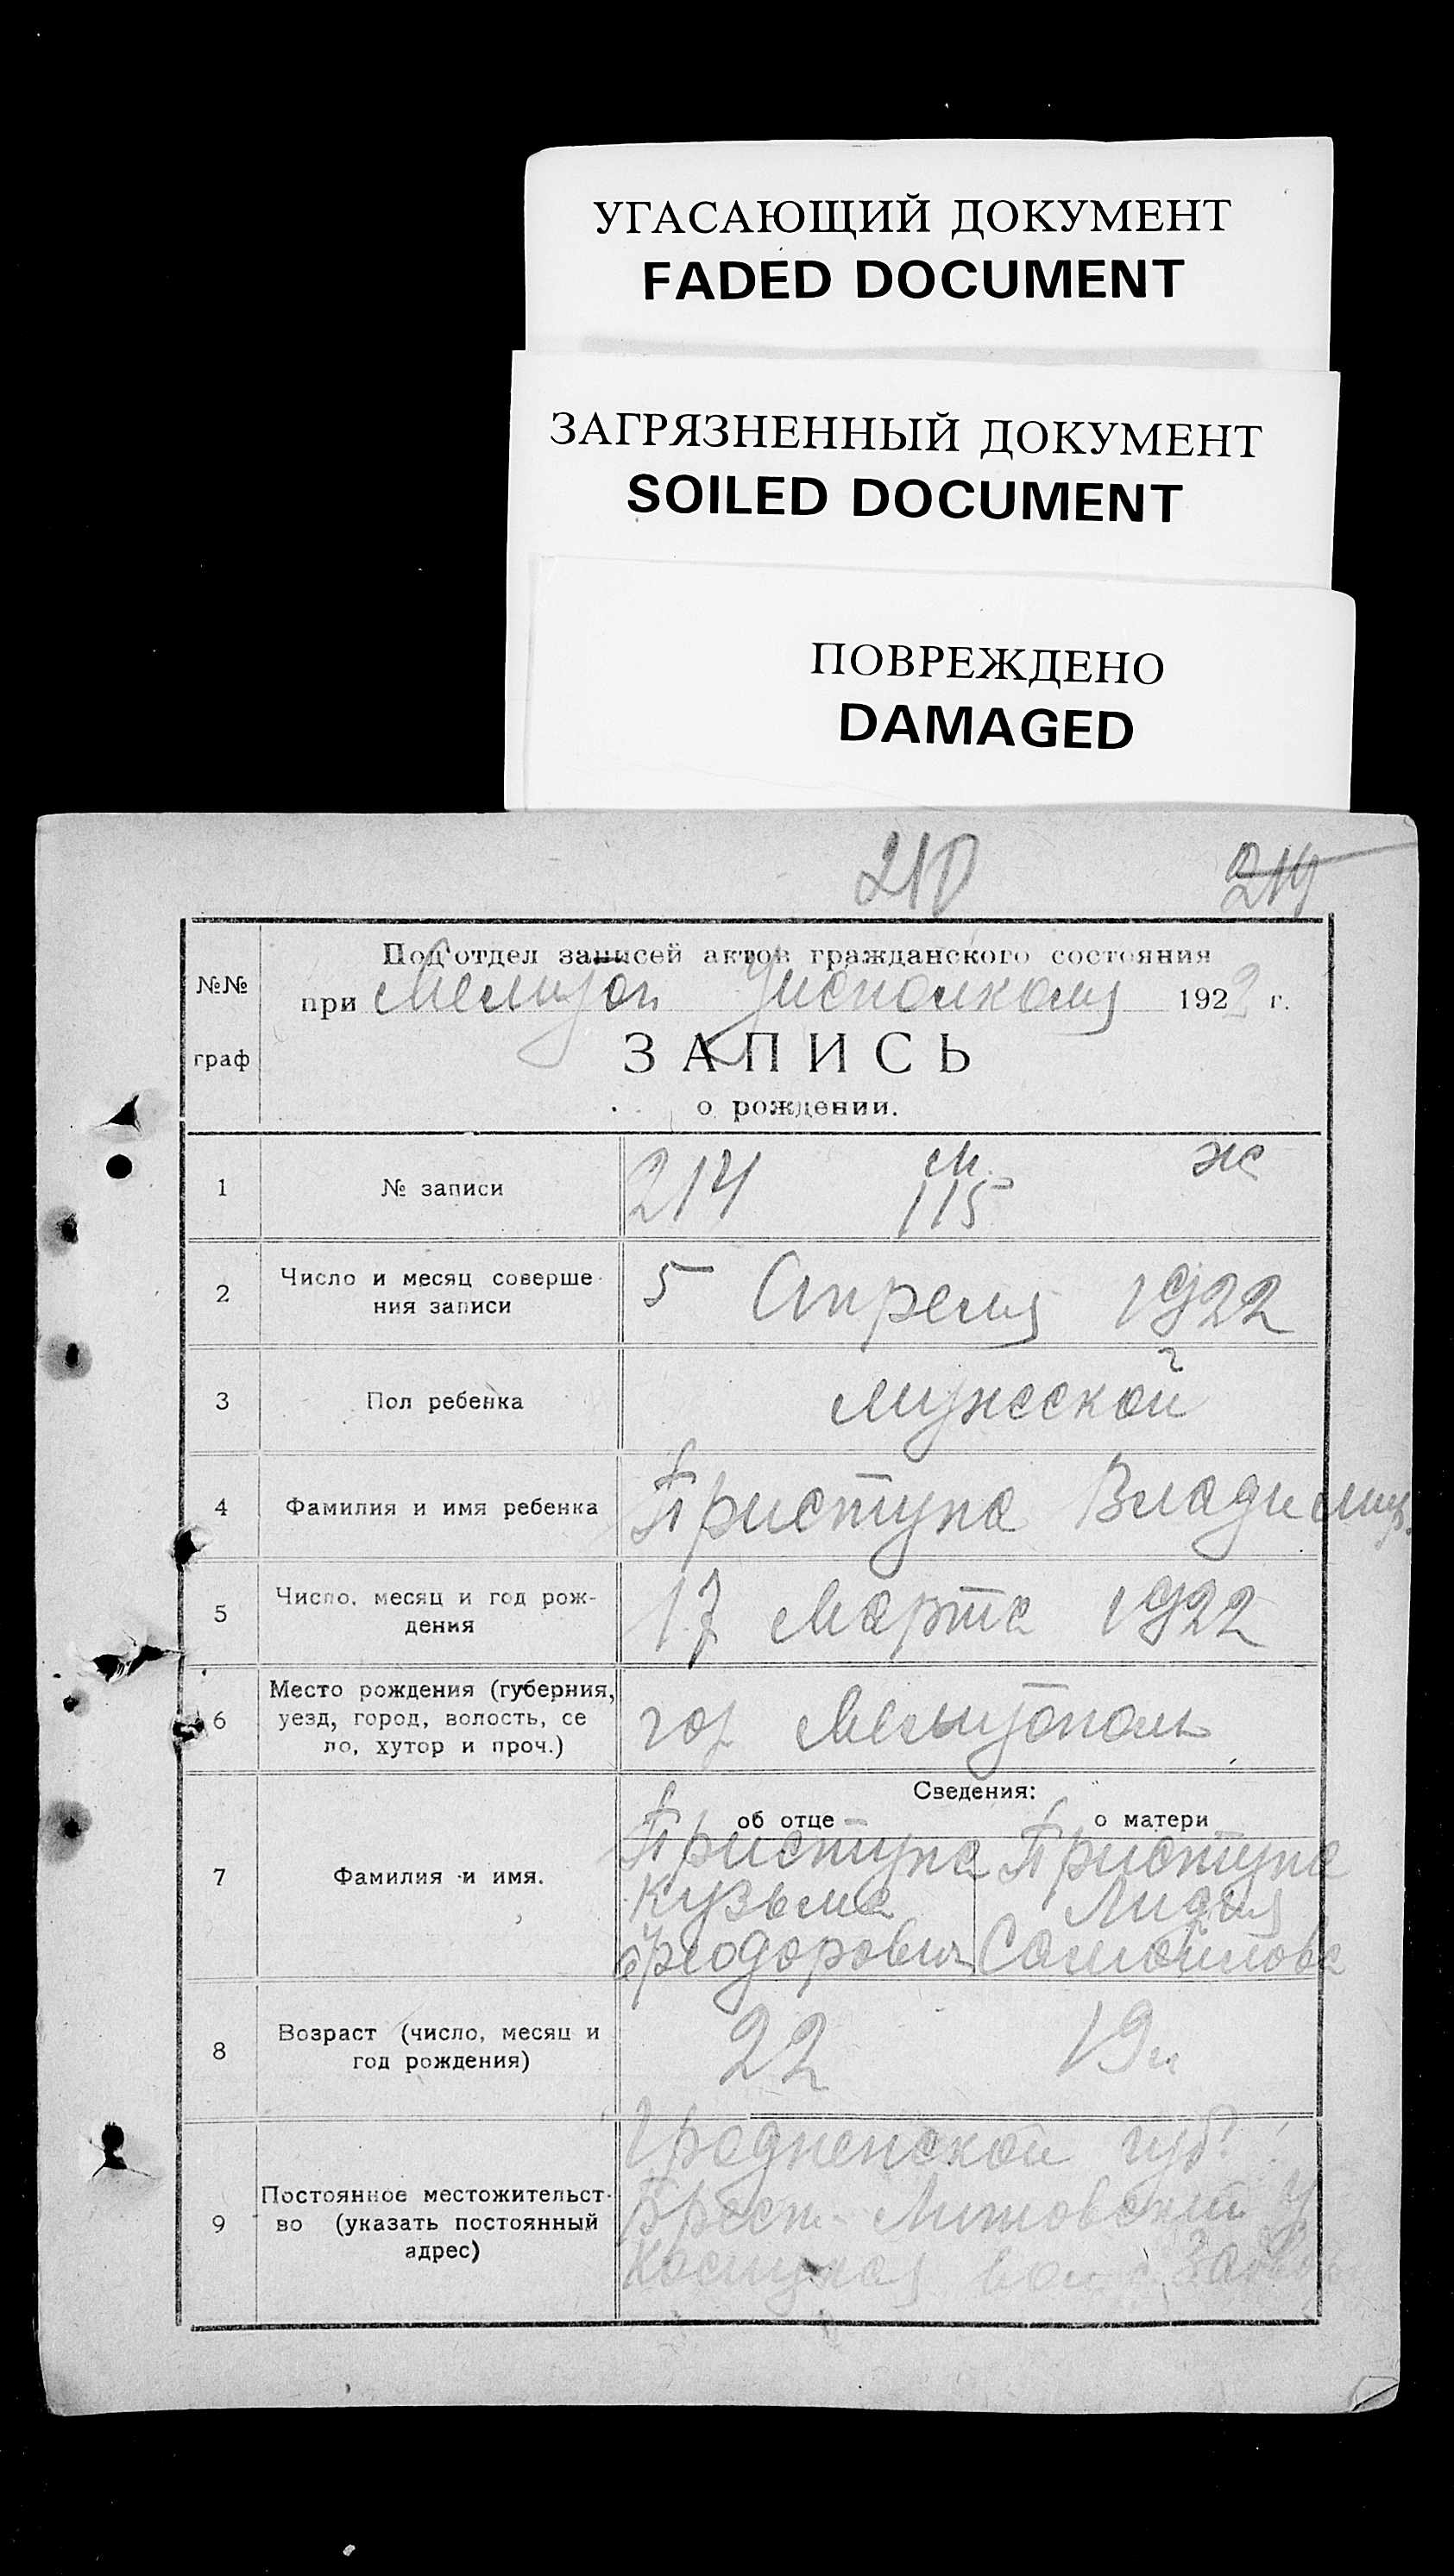 УГАСАЮЩИЙ ДОКУМЕНТ
FADED DOCUMENT
ЗАГРЯЗНЕННЫЙ ДОКУМЕНТ
SOILED DOCUMENT
ПОВРЕЖДЕНО
DAMAGED
210 214
Подотдел записей актов гражданского состояния
№№ при Мелитоп Уисполкома 1922 г.
граф ЗАПИСЬ
о рождении.
1 № записи 214 м. 115 ж
2 Число и месяц соверше
ния записи 5 Апреля 1922 г
3 Пол ребенка мужеской
4 Фамилия и имя ребенка Приступа Владимир
5 Число, месяц и год рож-
дения 17 Марта 1922
6 Место рождения (губерния,
уезд, город, волость, се
ло, хутор и проч.) гор Мелитополь
Сведения:
об отце о матери
7 Фамилия и имя. Приступа Приступа
Кузьма Лидия
Феодорович Самойлова
8 Возраст (число, месяц и
год рождения) 22 19 л
9 Постоянное местожительст-
во (указать постоянный
адрес)
Гродненской губ.
Брест-Литовский у
вол. с.